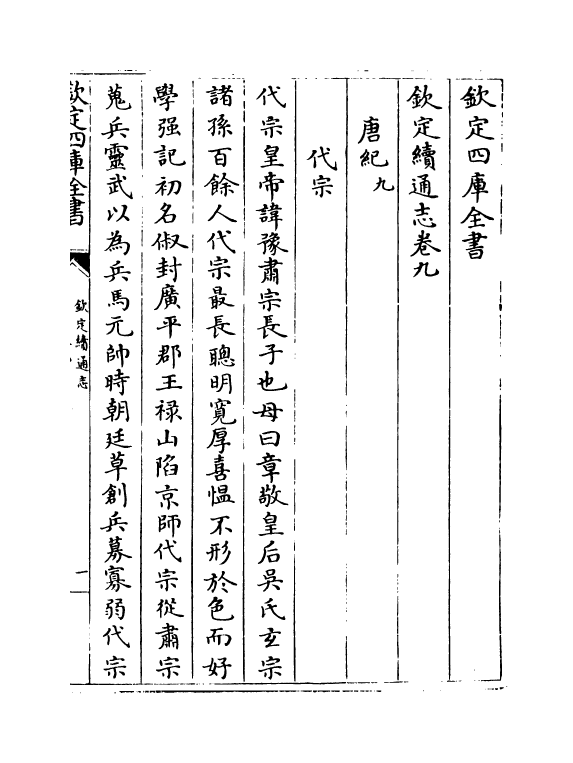 欽定四庫全書
欽定續通志卷九
唐紀九
代宗
代宗皇帝諱豫肅宗長子也母曰章敬皇后吳氏玄宗
諸孫百餘人代宗最長聰明寬厚喜愠不形於色而好
學强記初名俶封廣平郡王祿山陷京師代宗從肅宗
蒐兵靈武以為兵馬元帥時朝廷草創兵募寡弱代宗
欽定四庫全書
欽定續通志